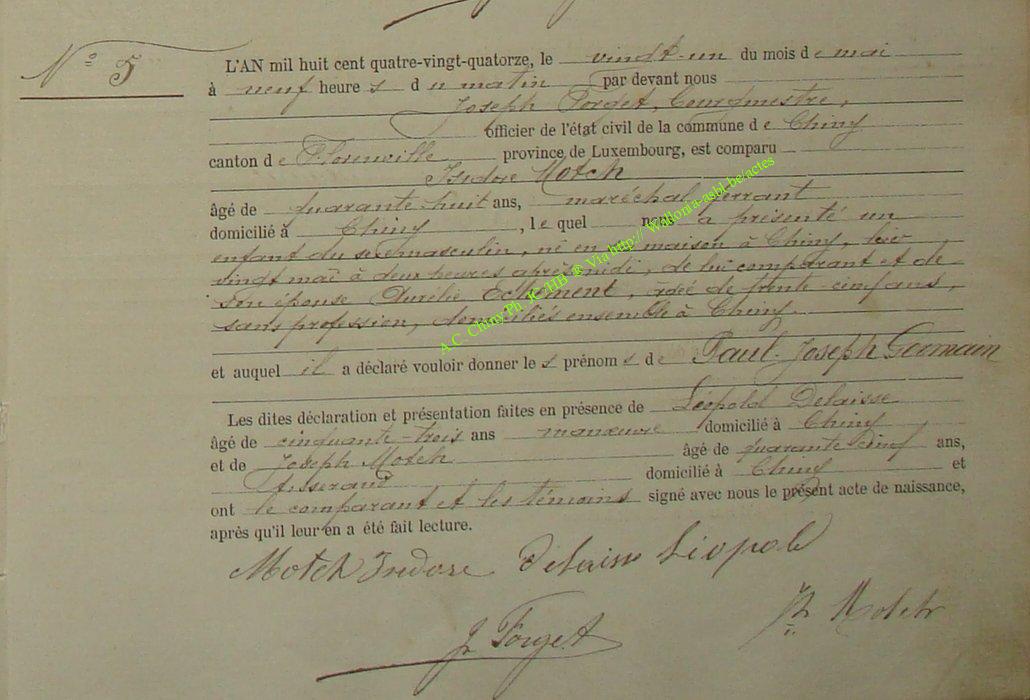 N° 5
L'AN mil huit cent quatre-vingt-quatorze, le vingt-un du mois de mai
à neuf heures du matin par devant nous
Joseph Forget, bourgmestre,
officier de l'état civil de la commune de Chiny
canton de Florenville province de Luxembourg, est comparu
Isidore Motch
âgé de quarante huit ans, maréchal ferrant
domicilié à Chiny, lequel nous a présenté un
enfant du sexe masculin, né en sa maison à Chiny, le
vingt mai à deux heures après midi, de lui comparant et de
son épouse Aurélie Clément, âgée de trente-cinq ans,
sans profession, domiciliés ensemble à Chiny.
et auquel il a déclaré vouloir donner les prénoms de Paul-Joseph Germain
Les dites déclaration et présentation faites en présence de Léopold Delaisse
âgé de cinquante-trois ans manœuvre domicilié à Chiny
et de Joseph Motch âgé de quarante cinq ans,
tisserand domicilié à Chiny et
ont le comparant et les témoins signé avec nous le présent acte de naissance,
après qu'il leur en a été fait lecture.
Motch Isidore Delaisse Léopold
J. Forget Jh Motch
A.C. Chiny Ph. JCHB ® Via http://Wallonia-asbl.be/actes